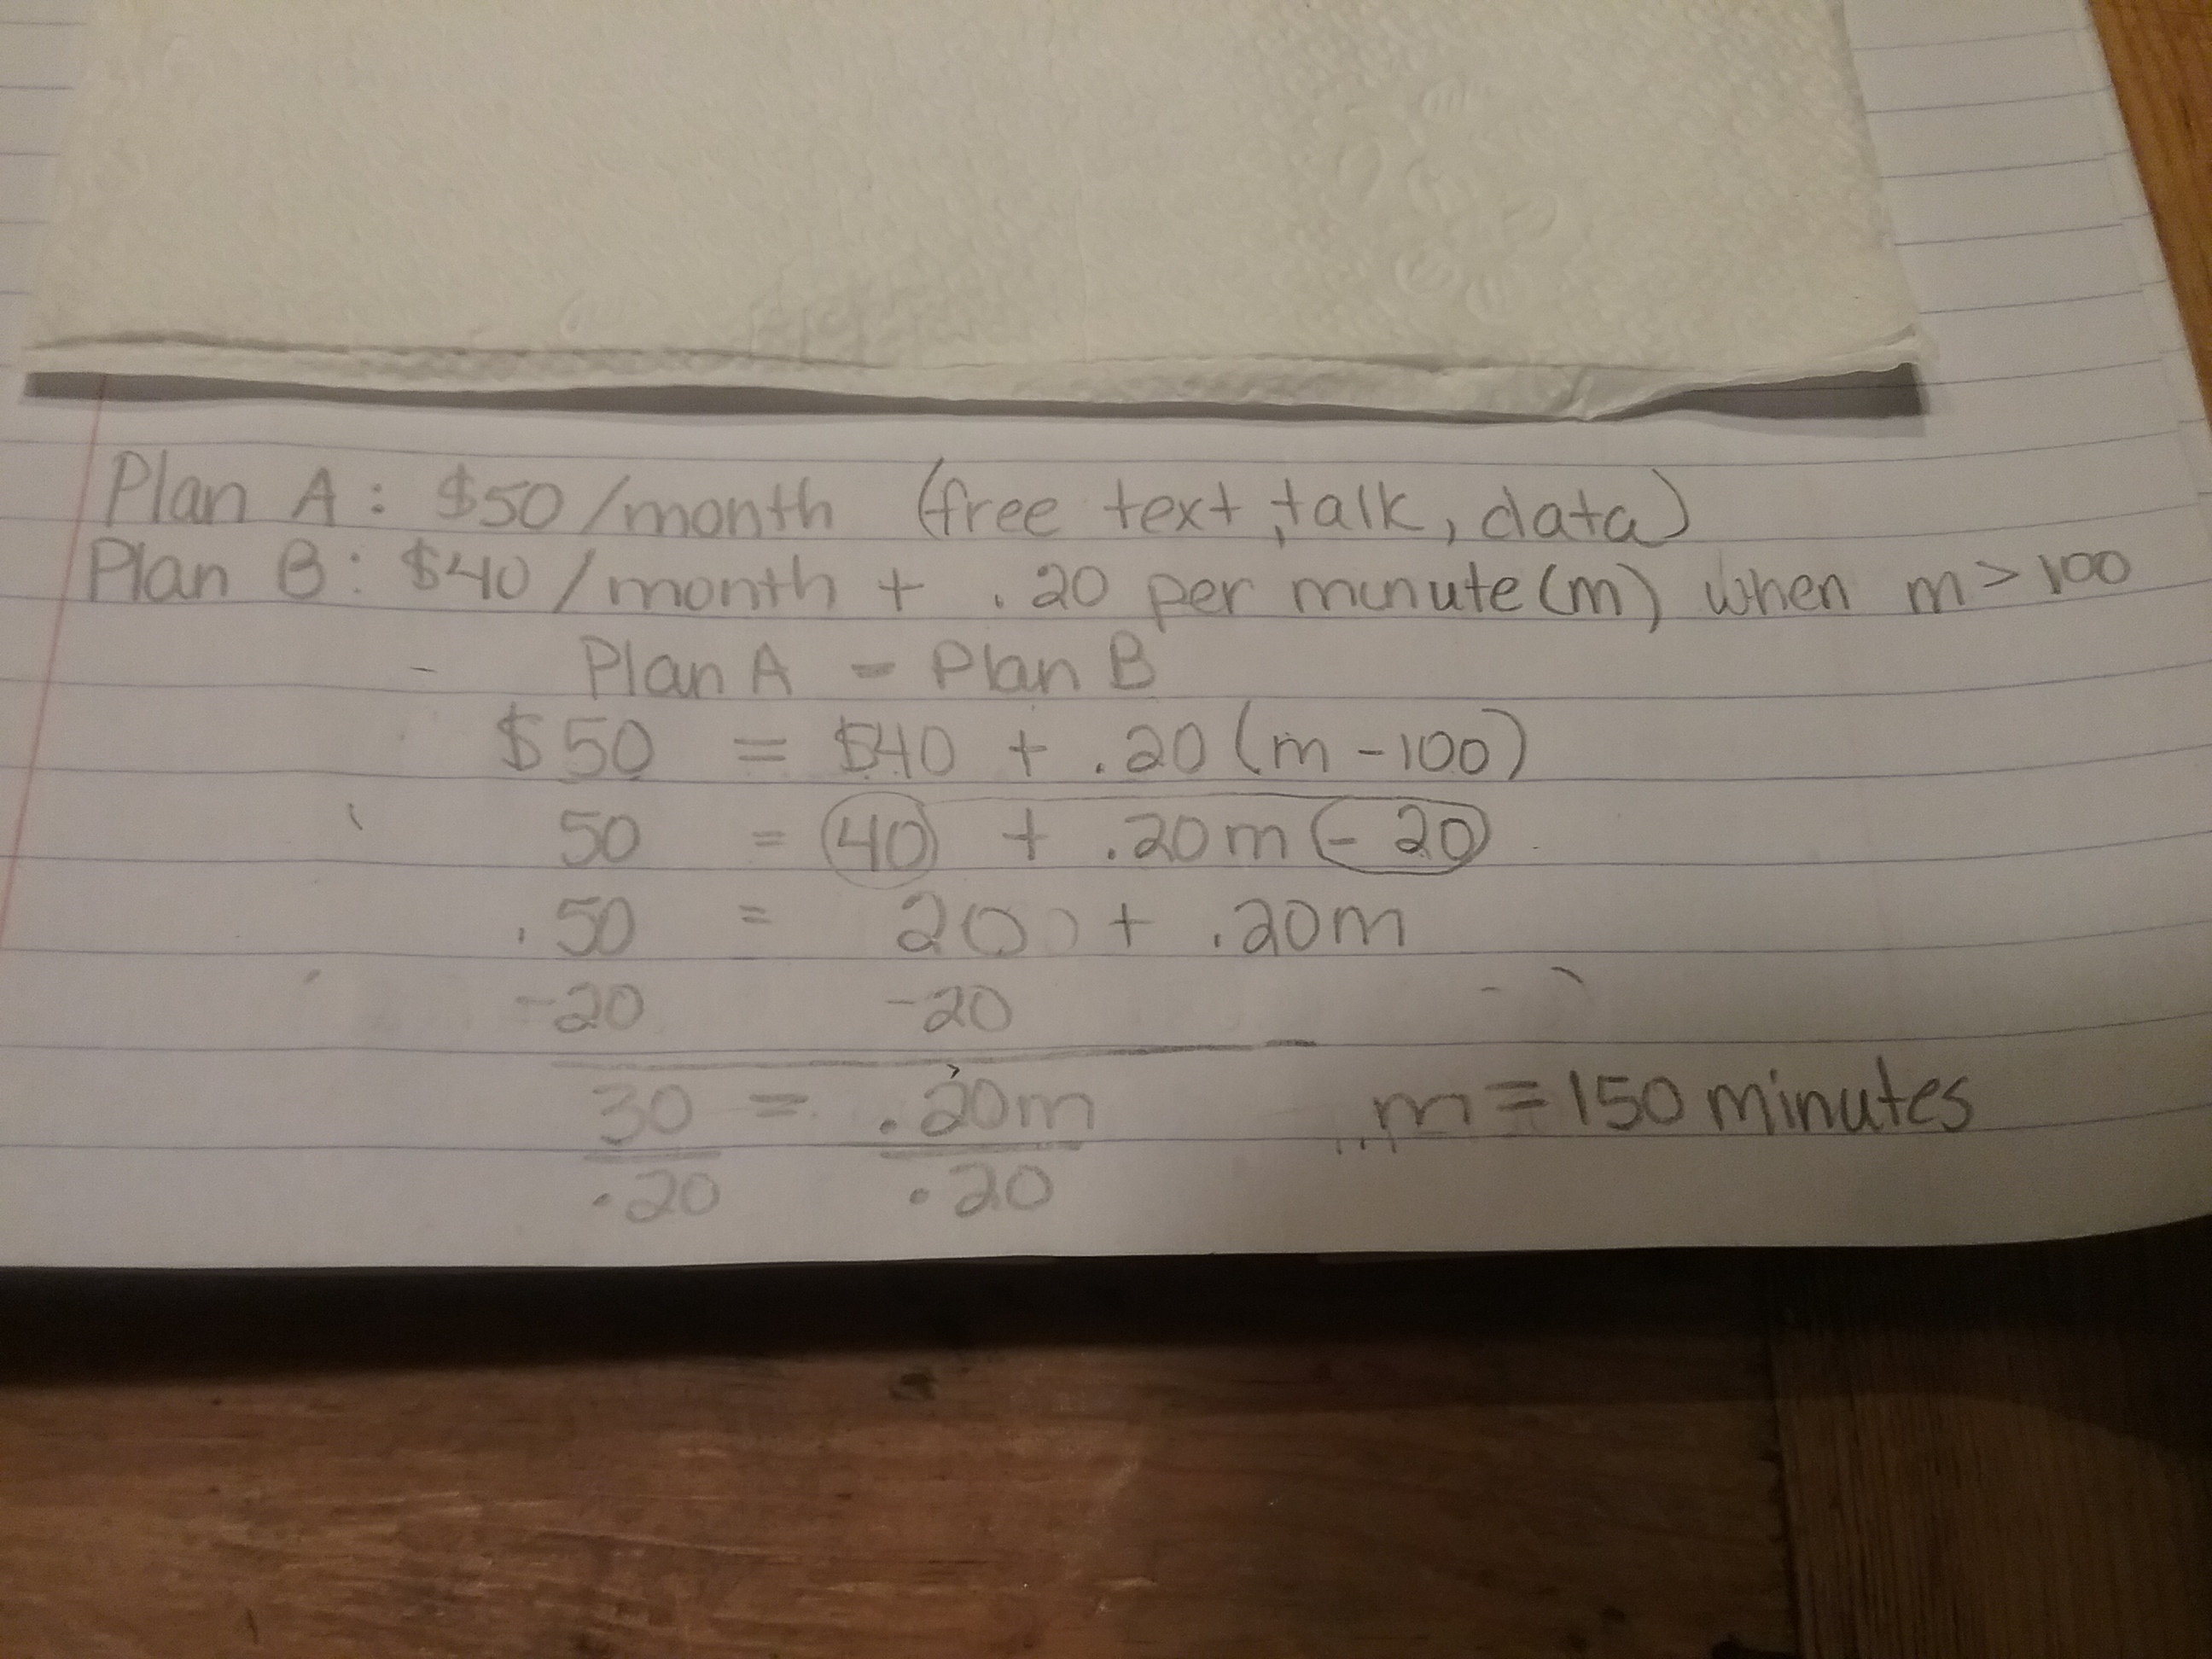 Plan A: $50/month (free text, talk, data)
Plan B: $40/month + .20 per minute(m) when m>100
Plan A = Plan B
$50 = $40 + .20(m-100)
50 = 40 + .20m - 20
50 = 20 + .20m
-20 -20
30 = .20m m=150 minutes
.20 .20